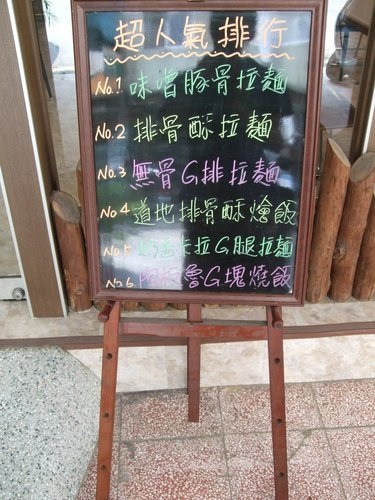 超人氣排行
No.1 味噌豚骨拉麵
No.2 排骨酥拉麵
No.3 無骨G排拉麵
No4 道地排骨酥燴飯
No.5 卡拉G腿拉麵
No.6 G塊燒飯